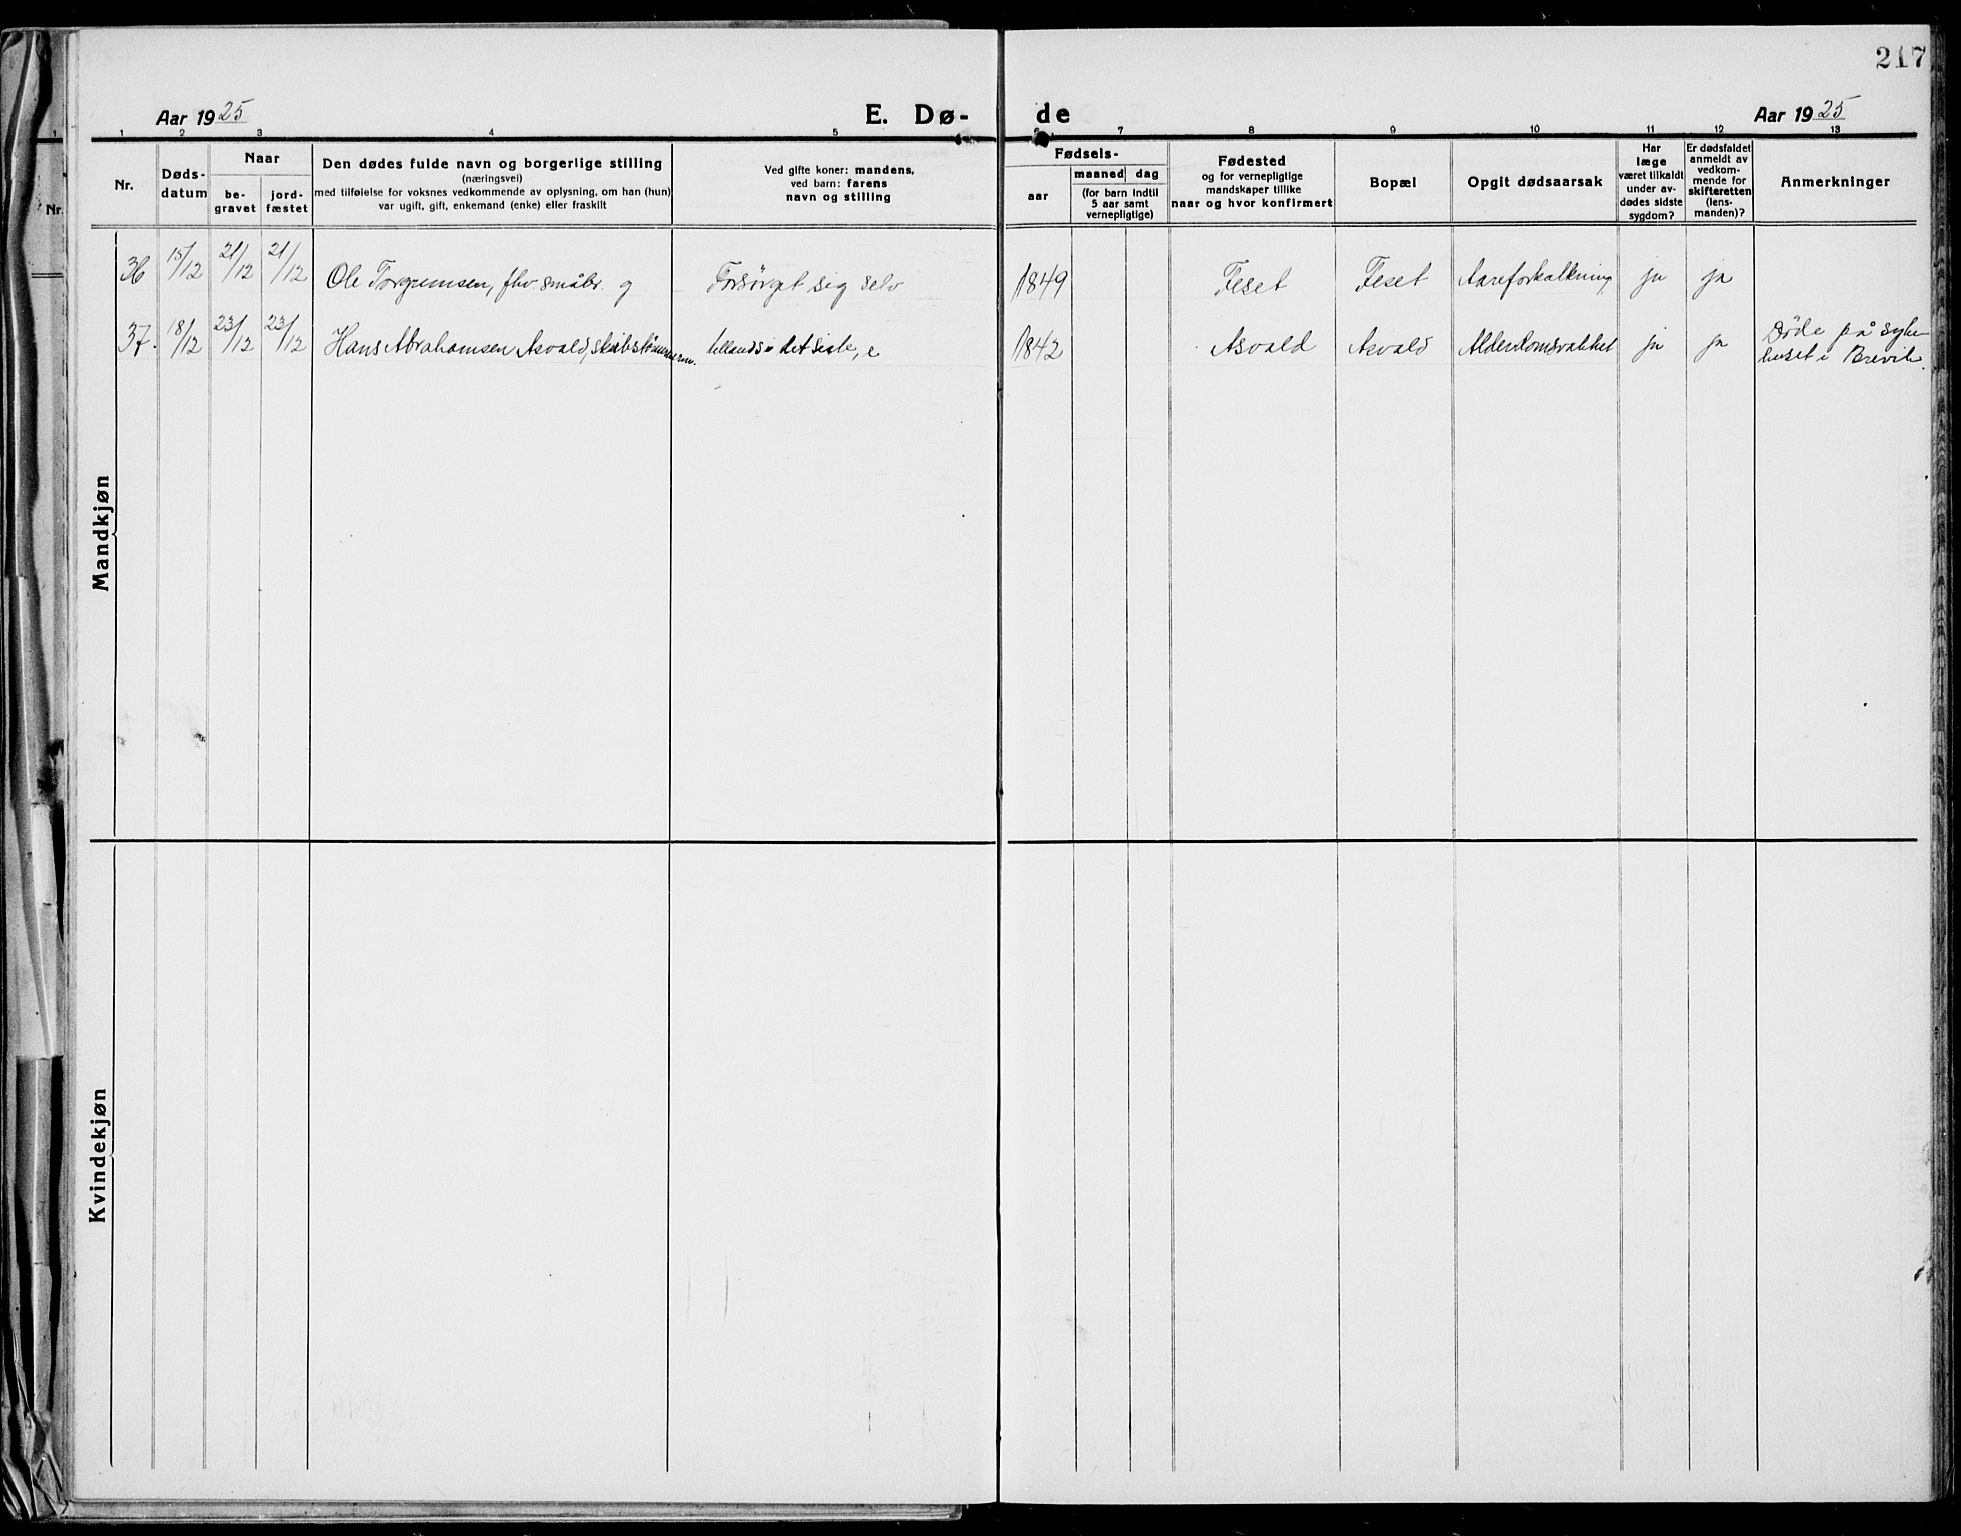 217
Aar 1925
E. Dø-
de
Aar 1925
1 2 3 4 5 6 7 8 9 10 11 12 13
Nr.
Døds-
datum
Naar
be-
gravet
jord-
fæstet
Den dødes fulde navn og borgerlige stilling
(næringsvei)
med tilføielse for voksnes vedkommende av oplysning, om han (hun)
var ugift, gift, enkemand (enke) eller fraskilt
Ved gifte koner: mandens,
ved barn: farens
navn og stilling
Fødsels-
aar
maaned dag
(for barn indtil
5 aar samt
vernepligtige)
Fødested
og for vernepligtige
mandskaper tillike
naar og hvor konfirmert
Bopæl
Opgit dødsaarsak
Har
læge
været tilkaldt
under av-
dødes sidste
sygdom?
Er dødsfaldet
anmeldt av
vedkom-
mende for
skifteretten
(lens-
manden)?
Anmerkninger
1
Nr.
Mandkjøn
36 15/12 21/12 21/12 Ole Torgrimsen, fhv. småbr. g Forsørget sig selv 1849 Feset Feset Aareforkalkning ja ja
37. 18/12 23/12 23/12 Hans Abrahamsen Asvald, skibstømmerm. tillands i det siste, e 1842 Asvald Asvald Alderdomssvakket ja ja Døde på syke-
huset i Brevik.
Kvindekjøn